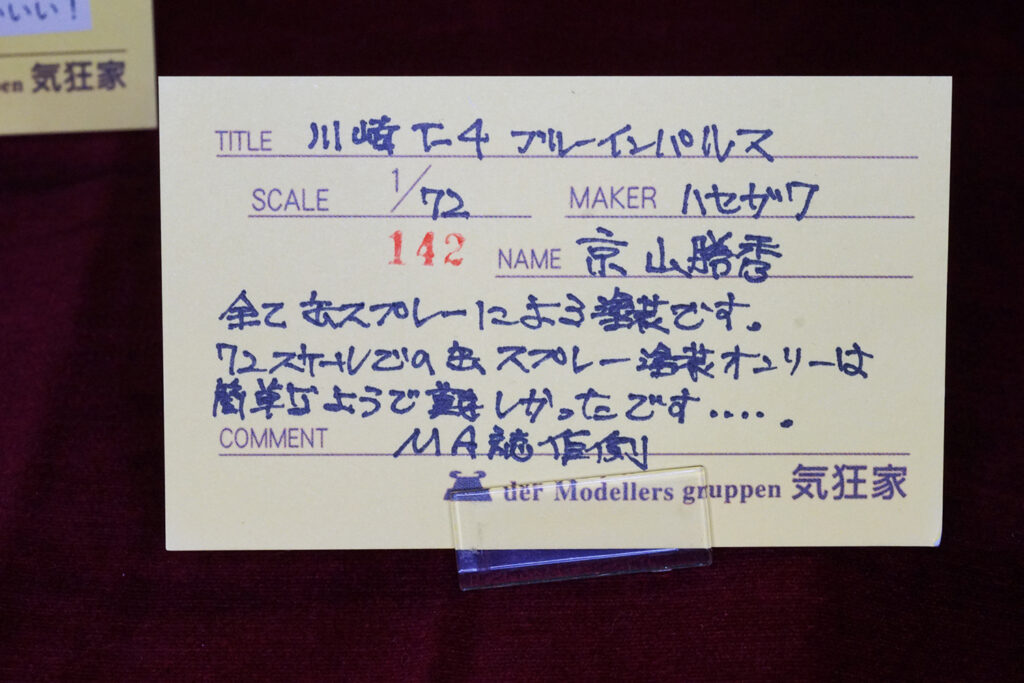 いい！
pen 気狂家
TITLE 川崎 T-4 ブルーインパルス
SCALE 1/72 MAKER ハセガワ
142 NAME 京山勝香
全て缶スプレーによる塗装です。
72スケールでの缶スプレー塗装オンリーは
簡単なようで難しかったです....。
COMMENT MA誌作例
der Modellers gruppen 気狂家